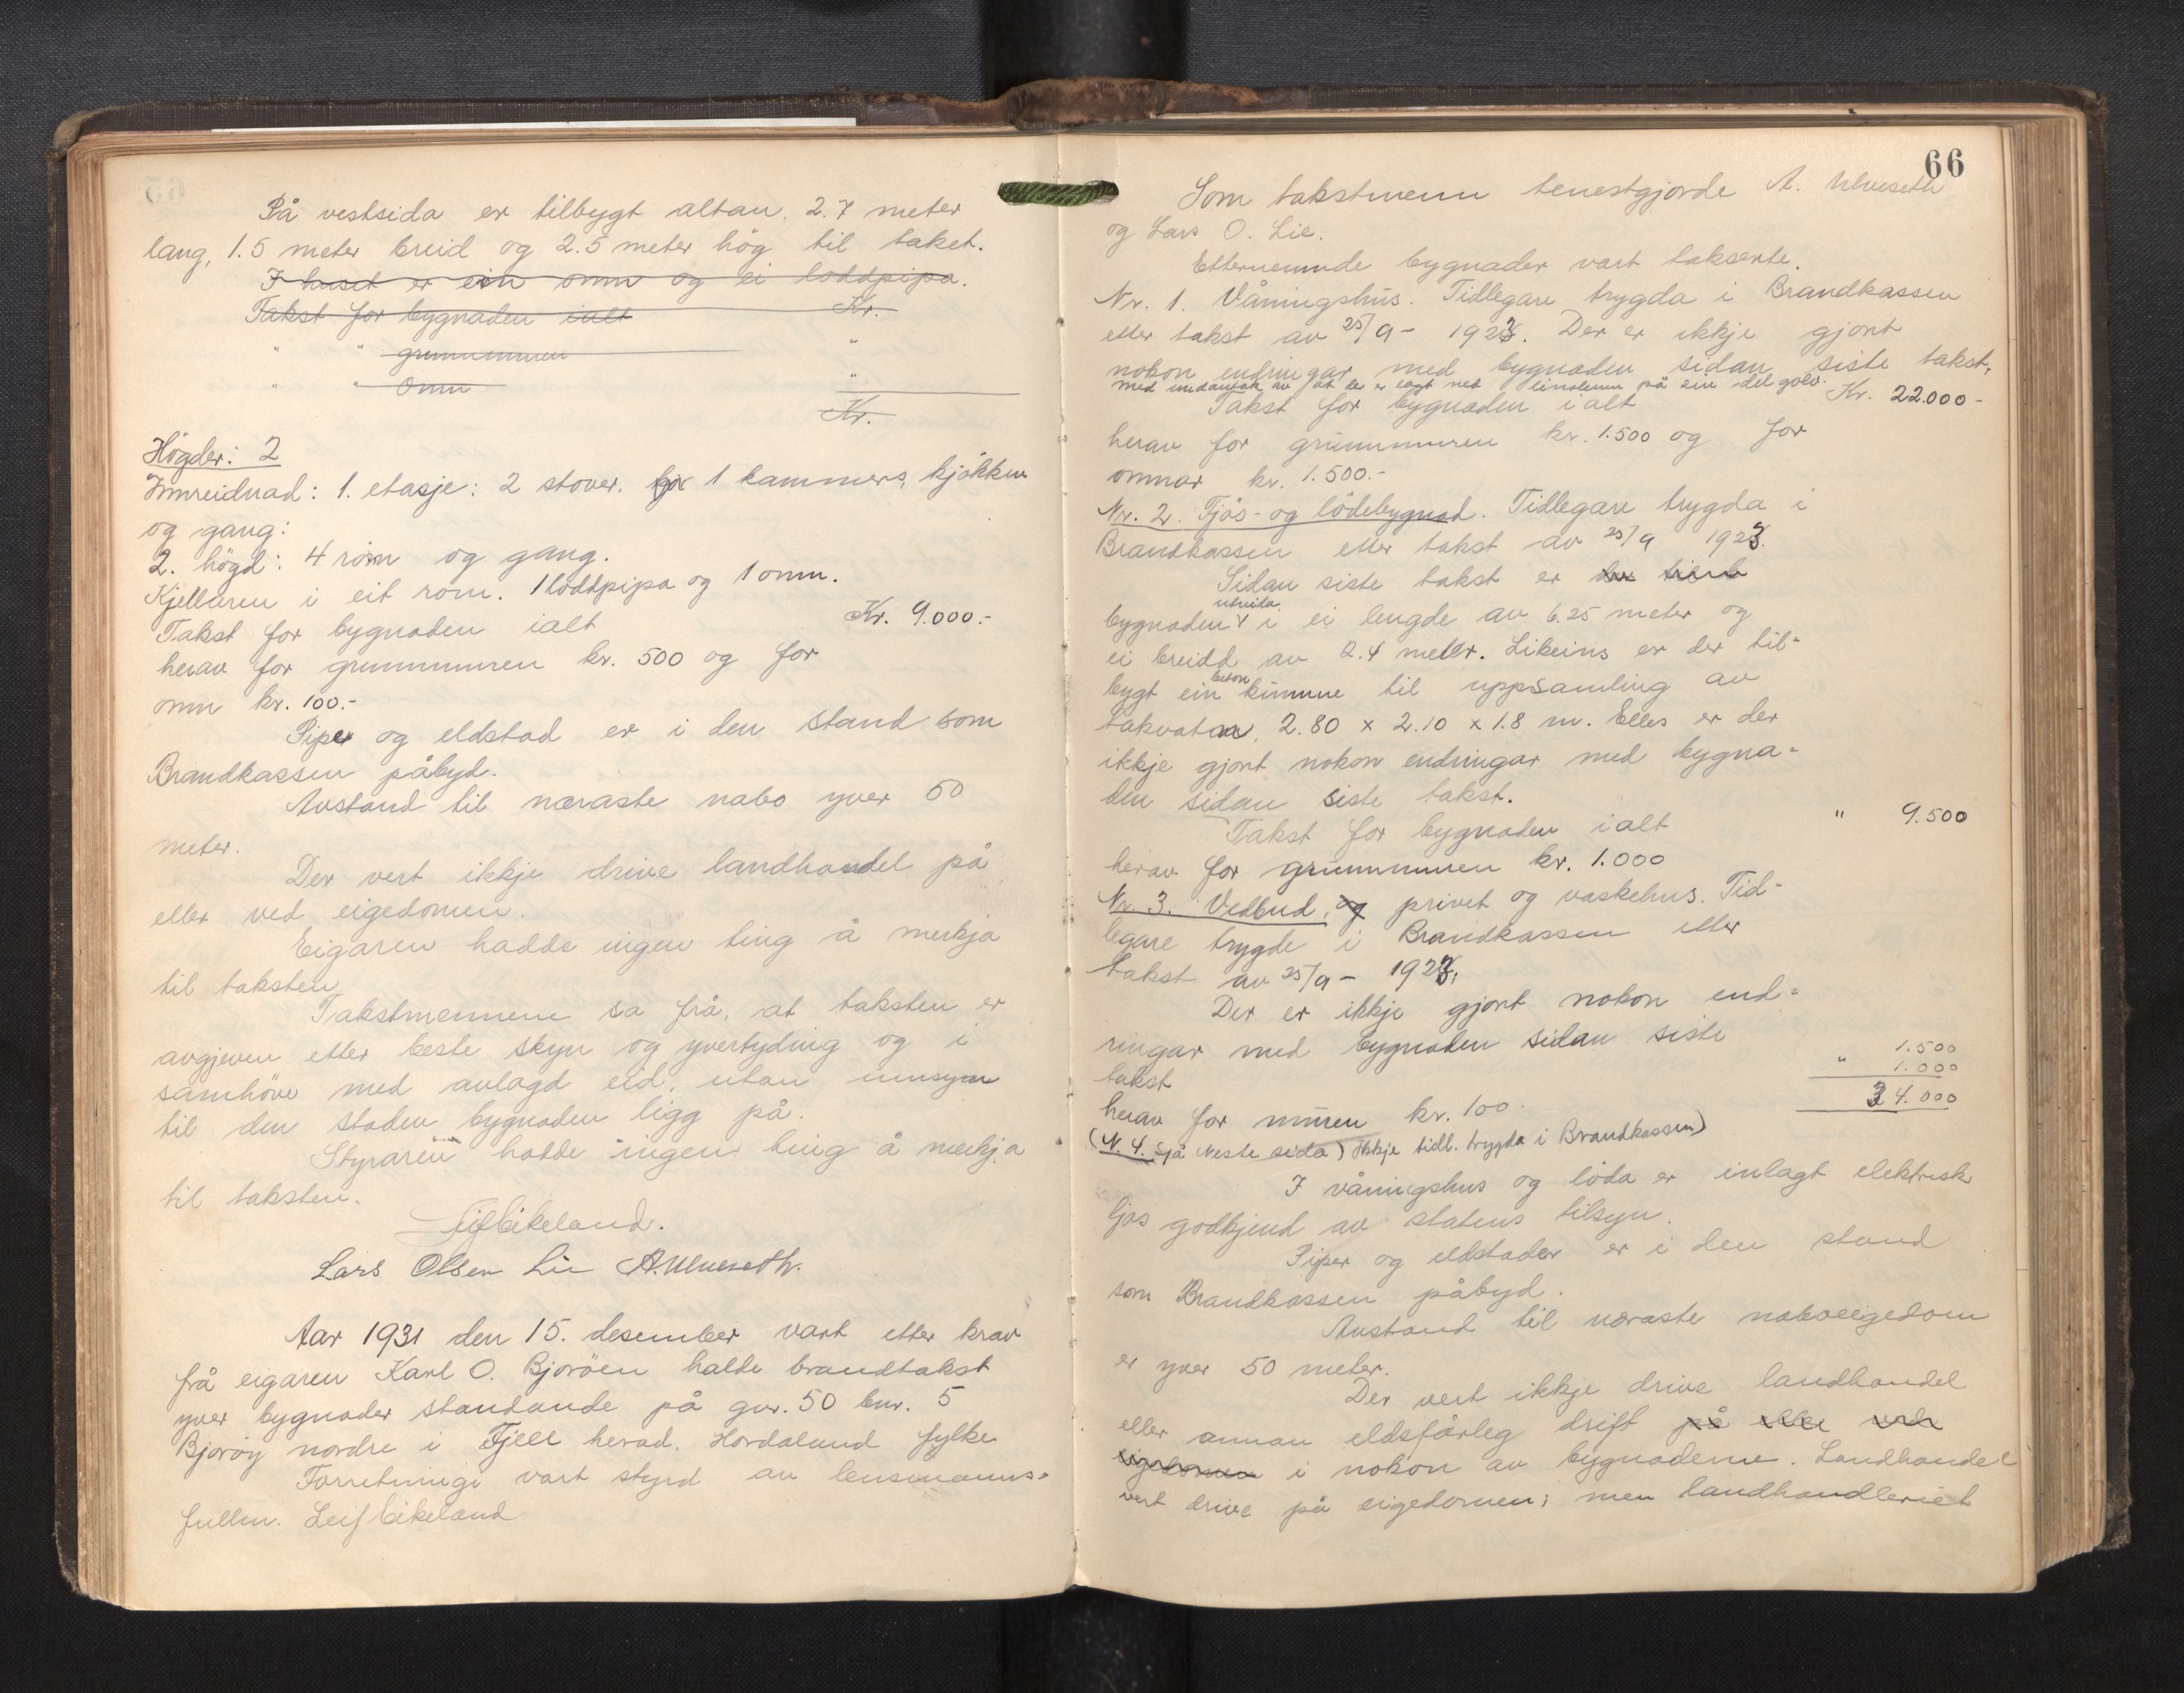 På vestsida er tilbygt altan, 2.7 meter
lang, 1.5 meter breid og 2.5 meter høg til taket.
I huset er ein omn og ei loddpipa.
Takst for bygnaden ialt Kr.-
" " grunnmuren "
" " Omn "
Kr.
Høgder: 2
Innreidnad: 1. etasje: 2 stover, kjø 1 kammers, kjøkken
og gang:
2. høgd: 4 rom og gang.
Kjellaren i eit rom. 1 loddpipa og 1 omn.
Takst for bygnaden ialt Kr. 9.000.-
herav for grunnmuren kr. 500 og for
omn kr. 100.-
Piper og eldstad er i den stand som
Brandkassen påbyd.
Avstand til næraste nabo yver 50
meter.
Der vert ikkje drive landhandel på
eller ved eigedomen.
Eigaren hadde ingen ting å merkja
til taksten.
Takstmennene sa frå, at taksten er
avgjeven etter beste skyn og yvertyding og i
samhøve med avlagd eid, utan umsyn
til den staden bygnaden ligg på.
Styraren hadde ingen ting å merkja
til taksten.
Leif Eikeland.
Lars Olsen Lie A. Ulveseth.
Aar 1931 den 15. desember vart etter krav
frå eigaren Karl O. Bjorøen halde brandtakst
yver bygnader standande på gnr. 50 bnr. 5
Bjorøy nordre i Fjell herad, Hordaland fylke
Forretningi vart styrd av lensmanns-
fullm. Leif Eikeland
66
Som takstmenn tenestgjorde A. Ulveseth
og Lars O. Lie.
Etternemnde bygnader vart takserte.
Nr. 1. Våningshus. Tidlegare trygda i Brandkassen
etter takst av 25/9 - 1923. Der er ikkje gjort
nokon endringar med bygnaden sidan siste takst,
med undantak av at der er lagt ned linoleum på ein del golv.
Takst for bygnaden ialt Kr. 22.000-
herav for grunnmuren kr. 1.500 og for
omnar kr. 1.500.-
Nr. 2. Fjøs- og lødebygnad. Tidlegare trygda i
Brandkassen etter takst av 25/9 1923.
Sidan siste takst er der
utvida
bygnaden i ei lengde av 6.25 meter og
ei breidd av 2.4 meter. Likeins er der til-
bygt ein beton kumme til uppsamling av
takvatn, 2.80 x 2.10 x 1.8 m. Elles er der
ikkje gjort nokon endringar med bygna-
den sidan siste takst.
Takst for bygnaden ialt " 9.500
herav for grunnmuren kr. 1.000
Nr. 3. Vedbud, og privet og vaskehus. Tid-
legare trygde i Brandkassen etter
takst av 25/9 - 1923.
Der er ikkje gjort nokon end-
ringar med bygnaden sidan siste
takst " 1.500
1.000
34.000
herav for muren kr. 100.
(N. 4. Sjå Neste sida) Ikkje tidl. trygda i Brandkassen)
I våningshus og løda er inlagt elektrisk
ljos godkjend av statens tilsyn.
Piper og eldstader er i den stand
som Brandkassen påbyd.
Avstand til næraste naboeigedom
er yver 50 meter.
Der vert ikkje drive landhandel
eller annan eldsfårleg drift på eller ved
eigedomen i nokon av bygnaderne. Landhandel
vert drive på eigedomen; men landhandleriet